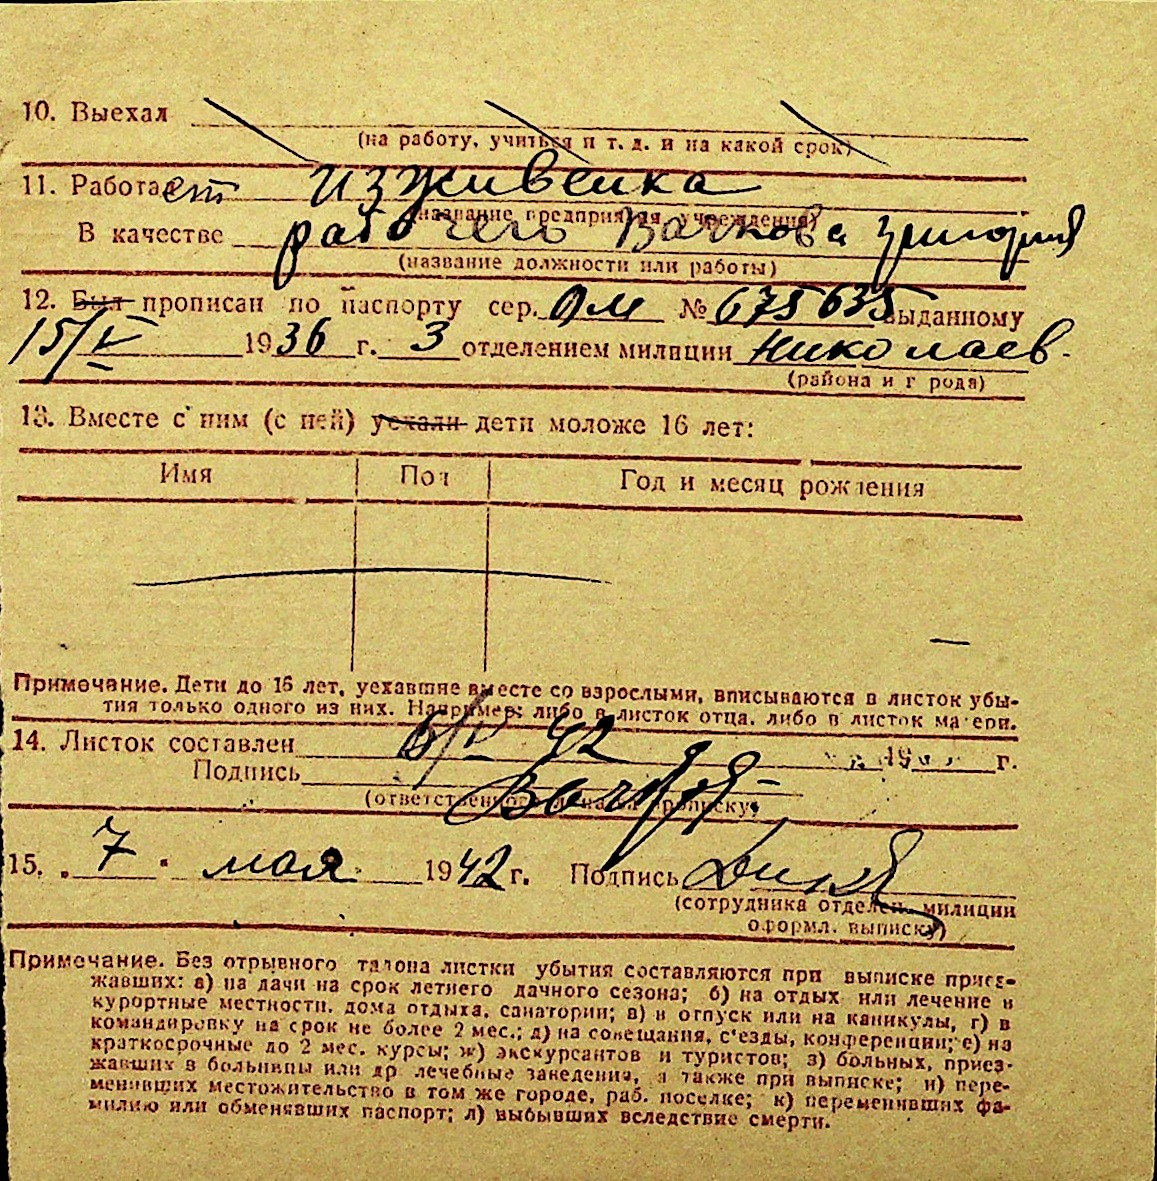 10. Выехал
(на работу, учиться и т. д. и на какой срок)
11. Работает иждивенка
(название предприятия, учреждения)
В качестве рабочего Вачкова Григория
(название должности или работы)
12. Был прописан по паспорту сер. ОМ № 675635 выданному
15/V 1936 г. 3 отделением милиции Николаев.
(района и города)
13. Вместе с ним (с ней) уехали дети моложе 16 лет:
Имя Пол Год и месяц рождения
Примечание. Дети до 16 лет, уехавшие вместе со взрослыми, вписываются в листок убы-
тия только одного из них. Например: либо в листок отца, либо в листок матери.
14. Листок составлен 6/V 42 19 г.
Подпись
(ответственного за прописку)
15. 7 мая 1942 г. Подпись
(сотрудника отделен. милиции
оформл. выписку)
Примечание. Без отрывного талона листки убытия составляются при выписке приез-
жавших: а) на дачи на срок летнего дачного сезона; б) на отдых или лечение в
курортные местности, дома отдыха, санатории; в) в отпуск или на каникулы, г) в
командировку на срок не более 2 мес.; д) на совещания, с'езды, конференции; е) на
краткосрочные до 2 мес. курсы; ж) экскурсантов и туристов; з) больных, приез-
жавших в больницы или др лечебные заведения, а также при выписке; и) пере-
менивших местожительство в том же городе, раб. поселке; к) переменивших фа-
милию или обменявших паспорт; л) выбывших вследствие смерти.